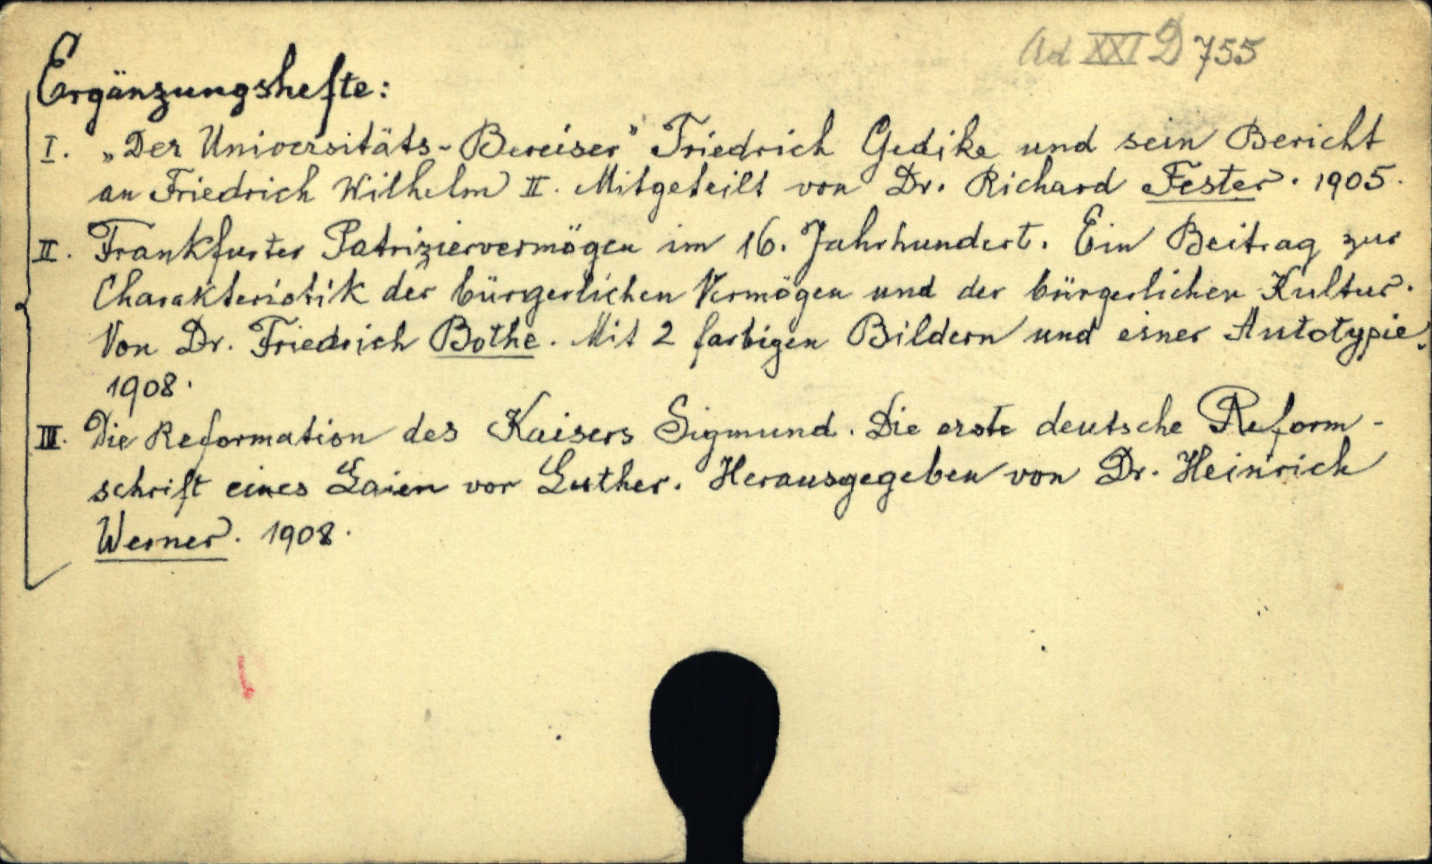 Ad XXI D 755
Ergänzungshefte:
I. „Der Universitäts-Bereiser" Friedrich Gedike und sein Bericht
an Friedrich Wilhelm II. Mitgeteilt von Dr. Richard Fester. 1905.
II. Frankfurter Patriziervermögen im 16. Jahrhundert. Ein Beitrag zur
Charakteristik der bürgerlichen Vermögen und der bürgerlichen Kultur.
Von Dr. Friedrich Bothe. Mit 2 farbigen Bildern und einer Autotypie.
1908.
III. Die Reformation des Kaisers Sigmund. Die erste deutsche Reform-
schrift eines Laien vor Luther. Herausgegeben von Dr. Heinrich
Werner. 1908.